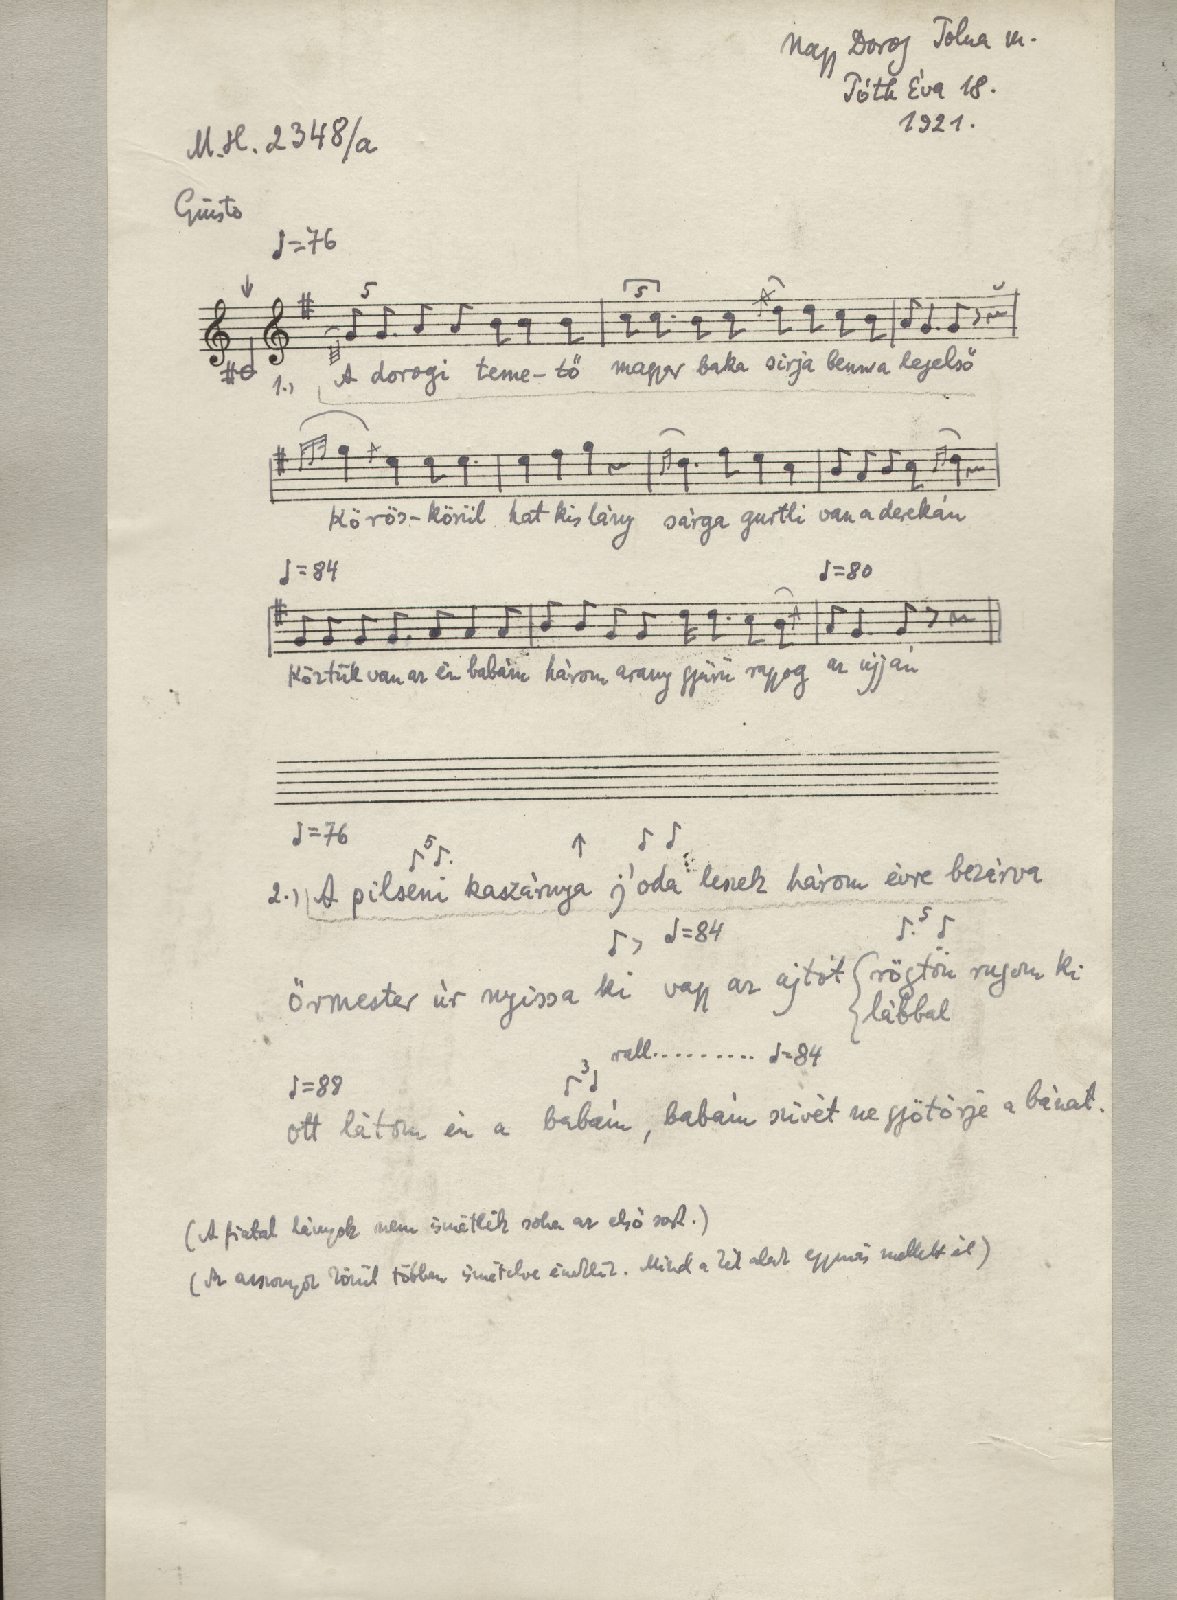 Nagy Dorog Tolna m.
Tóth Éva 18.
1921.
M.H. 2348/a
Giusto
♩=76
5
5
1.) A dorogi teme-tő magyar baka sirja bennva legelső
Körös-körül hat kis lány sárga gurtli van a derekán
♩=84
♩=80
Köztük van az én babám három arany gyűrű ragyog az ujján
♩=76
5
2.) A pilseni kaszárnya j'oda leszek három évre bezárva
♩=84
5
őrmester úr nyissa ki vagy az ajtót rögtön rugom ki
lábbal
rall.......... ♩=84
♩=88
3
ott látom én a babám, babám szivét ne gyötörje a bánat.
(A fiatal lányok nem ismétlik soha az első sort.)
(Az asszonyok közül többen ismételve éneklik. Mind a két alak egymás mellett él)